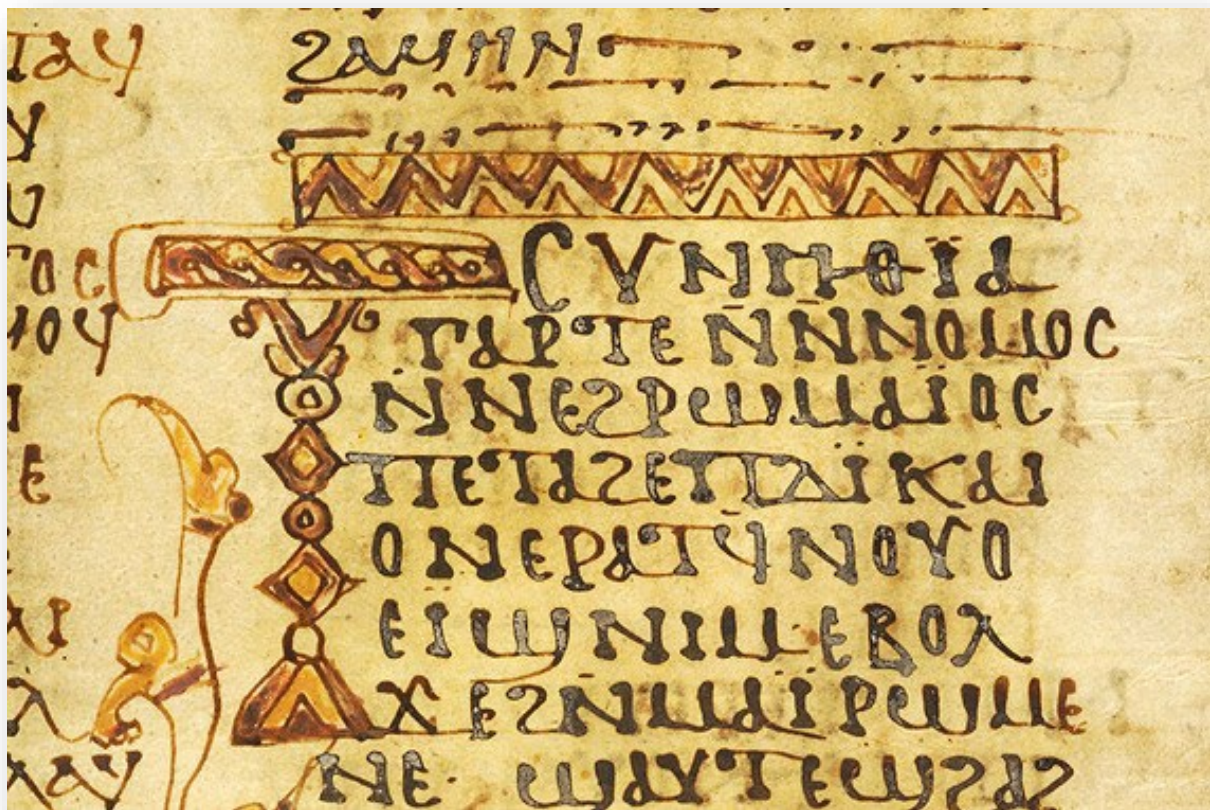 ϩⲁⲙⲏⲛ
ⲧⲥⲩⲛⲏⲑⲓ̈ⲁ
ⲅⲁⲣⲧⲉ ⲛ̄ⲛ̄ⲛⲟⲙⲟⲥ
ⲛ̄ⲛⲉϩⲣⲱⲙⲁⲓ̈ⲟⲥ
ⲡⲉⲧⲁϩⲉⲡⲇⲓ̈ⲕⲁⲓ
ⲟⲛⲉⲣⲁⲧϥ̄ⲛⲟⲩⲟ
ⲉⲓ̈ϣⲛⲓⲙⲉⲃⲟⲗ
ϫⲉϩⲛ̄ⲙⲁⲓ̈ⲣⲱⲙⲉ
ⲛⲉ· ϣⲁⲩⲧⲉϣϩⲁϩ